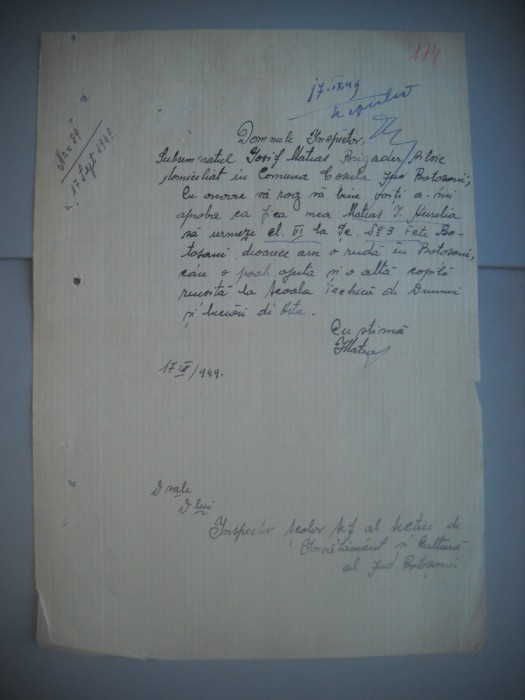 174
17-IX 949
Se aprobă
No 89
17 Sept 1949.
Domnule Inspector,
Subsemnatul Iosif Matias Brigader silvic
domiciliat în Comuna Cosula Jud Botosani,
Cu onoare vă rog să bine voiți a-mi
aproba ca fica mea Matias I. Aurelia
să urmeze cl. VI la Șc. No 3 Fete Bo-
toșani, deoarece am o rudă în Botosani,
care o poate ajuta și o altă copilă
reusită la Școala Technică de Drumuri
și lucrări de Arta.
Cu stimă
IMatias
17 IX/949.
D sale
D lui
Inspector Școlar Șef al Sectiei de
Învătământ și Cultură
al Jud Botoșani.